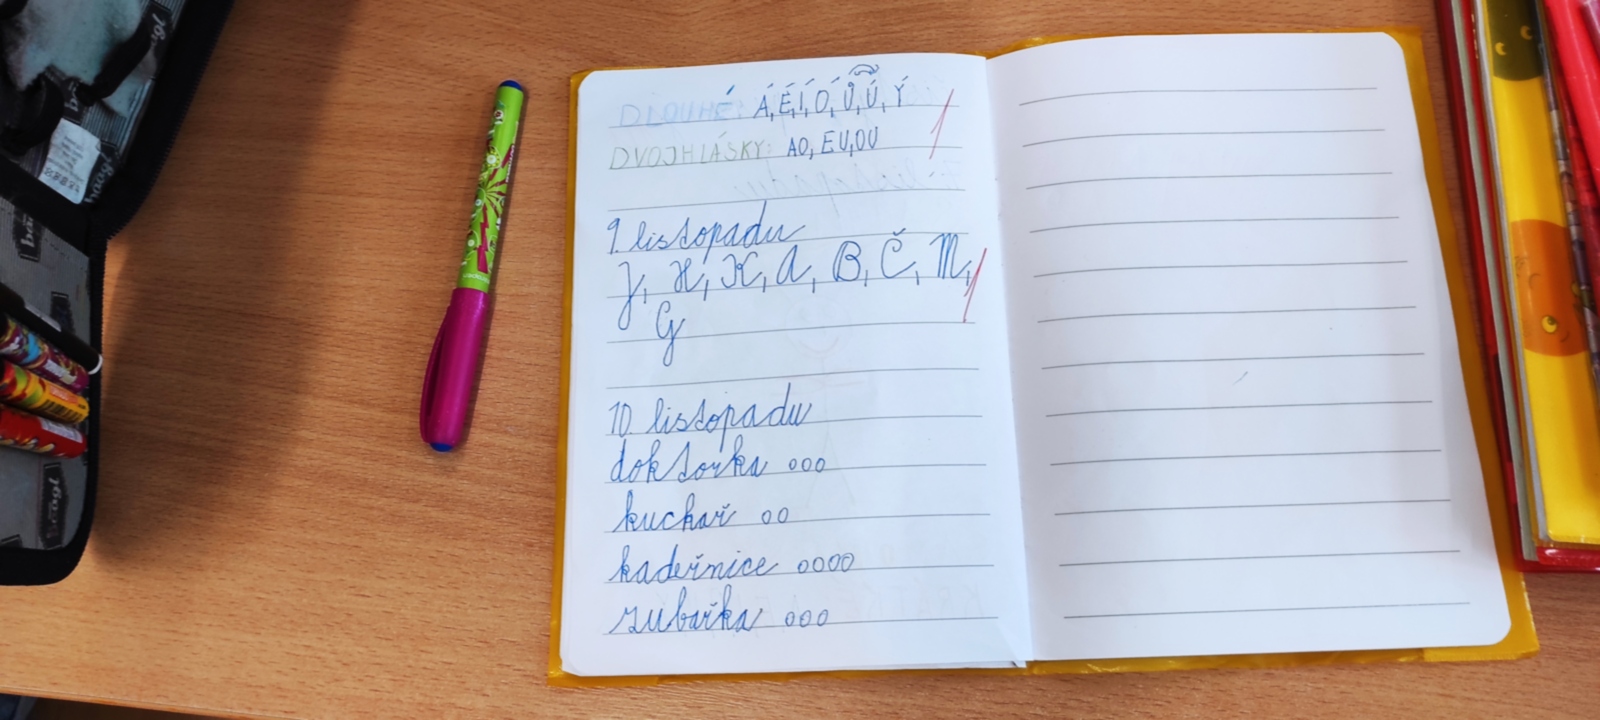 DLOUHÉ: Á, É, Í, Ó, Ů, Ú, Ý
DVOJHLÁSKY: AO, EU, OU
9. listopadu
J, H, K, A, B, Č, M,
G
10. listopadu
doktorka ooo
kuchař oo
kadeřnice oooo
zubařka ooo